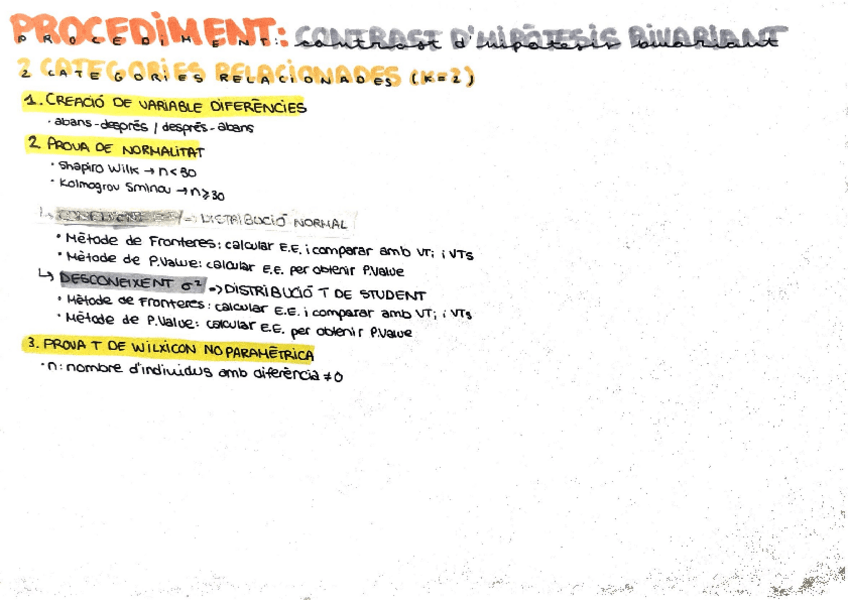 PROCEDIMENT: CONTRAST D'HIPÒTESIS BIVARIANT
2 CATEGORIES RELACIONADES (K=2)
1. CREACIÓ DE VARIABLE DIFERÈNCIES
· abans-després / després-abans
2 PROVA DE NORMALITAT
· Shapiro Wilk → n<30
· Kolmogrov Sminov → n≥30
↳ => DISTRIBUCIÓ NORMAL
· Mètode de Fronteres: calcular E.E. i comparar amb VTi i VTs
· Mètode de P.Value: calcular E.E. per obtenir P.Value
↳ DESCONEIXENT σ² => DISTRIBUCIÓ T DE STUDENT
· Mètode de Fronteres: calcular E.E. i comparar amb VTi i VTs
· Mètode de P.Value: calcular E.E. per obtenir P.Value
3. PROVA T DE WILXICON NO PARAMÈTRICA
· n: nombre d'individus amb diferència ≠ 0